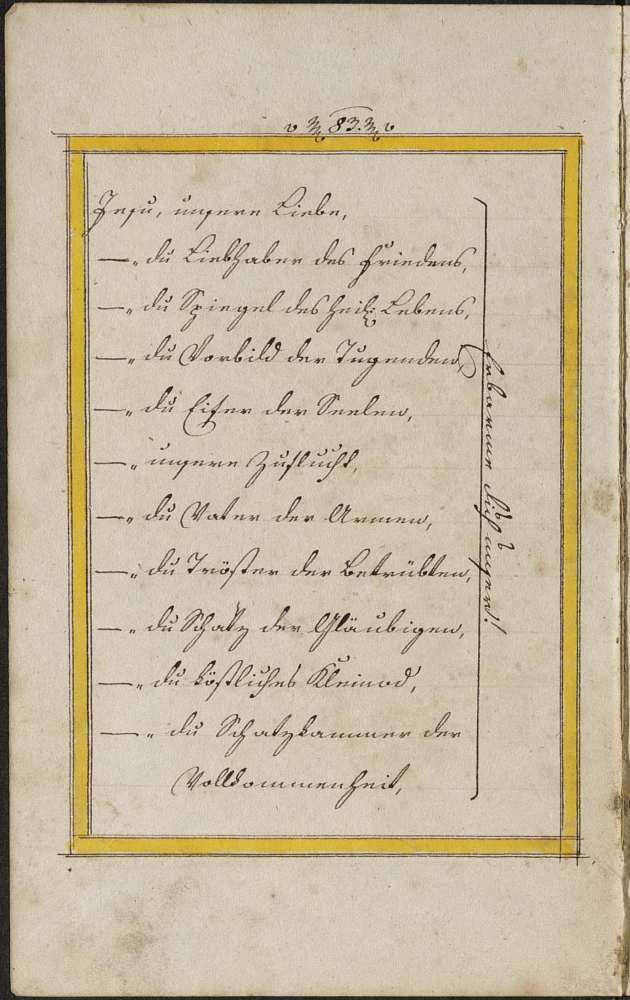 83.
Jesu, unsere Liebe,
—„ du Liebhaber des Friedens,
—„ du Spiegel des heil: Lebens,
—„ du Vorbild der Tugenden,
—„ du Eifer der Seelen,
—„ unsere Zuflucht,
—„ du Vater der Armen,
—„ du Tröster der Betrübten,
—„ du Schatz der Gläubigen,
—„ du köstliches Kleinod,
—„ du Schatzkammer der
Vollkommenheit,
Erbarme dich unser!